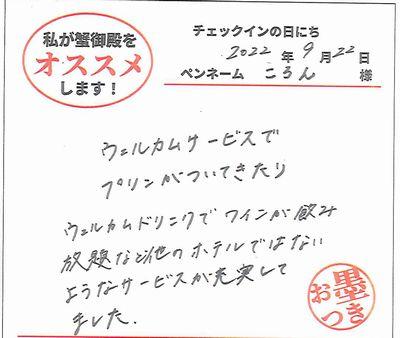 私が蟹御殿を
オススメ
します！
チェックインの日にち
2022年9月22日
ペンネーム ころん 様
ウェルカムサービスで
プリンがついてきたり
ウェルカムドリンクでワインが飲み
放題など他のホテルではない
ようなサービスが充実して
ました.
お墨
つき